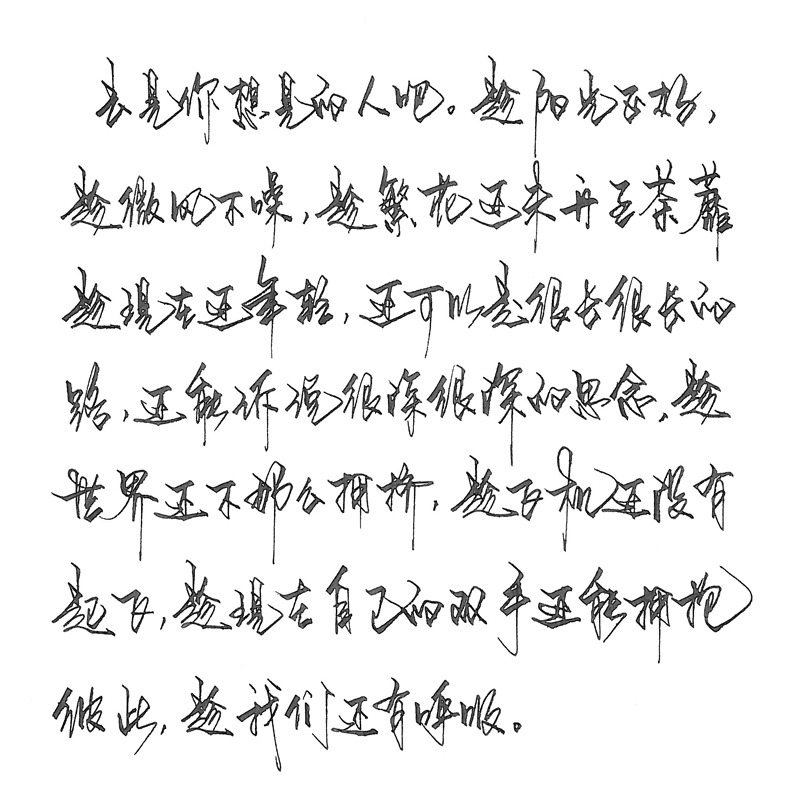 去见你想见的人吧。趁阳光正好，
趁微风不噪，趁繁花还未开至荼蘼
趁现在还年轻，还可以走很长很长的
路，还能诉说很深很深的思念，趁
世界还不那么拥挤，趁飞机还没有
起飞，趁现在自己的双手还能拥抱
彼此，趁我们还有呼吸。